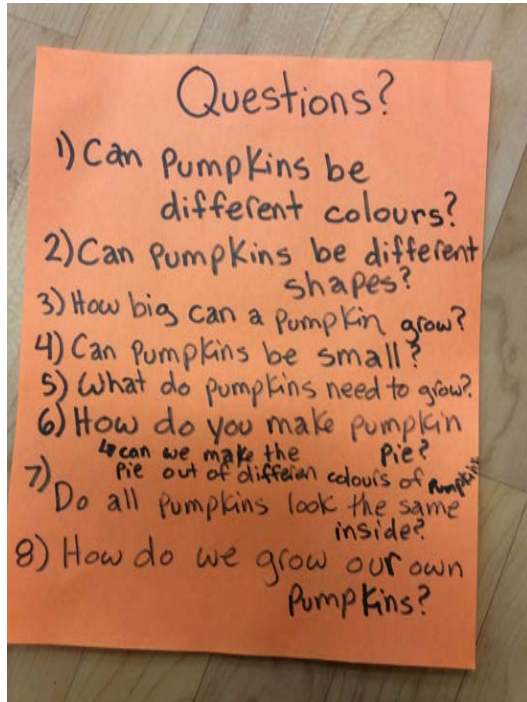 Questions?
1) Can Pumpkins be
different colours?
2) Can Pumpkins be different
shapes?
3) How big can a Pumpkin grow?
4) Can Pumpkins be small?
5) What do pumpkins need to grow?
6) How do you make pumpkin
Pie?
↳ can we make the
Pie out of differen colours of pumpkins
7)
Do all pumpkins look the same
inside?
8) How do we grow our own
Pumpkins?